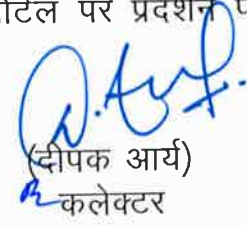 पोर्टल पर प्रदर्शन
(दीपक आर्य)
कलेक्टर